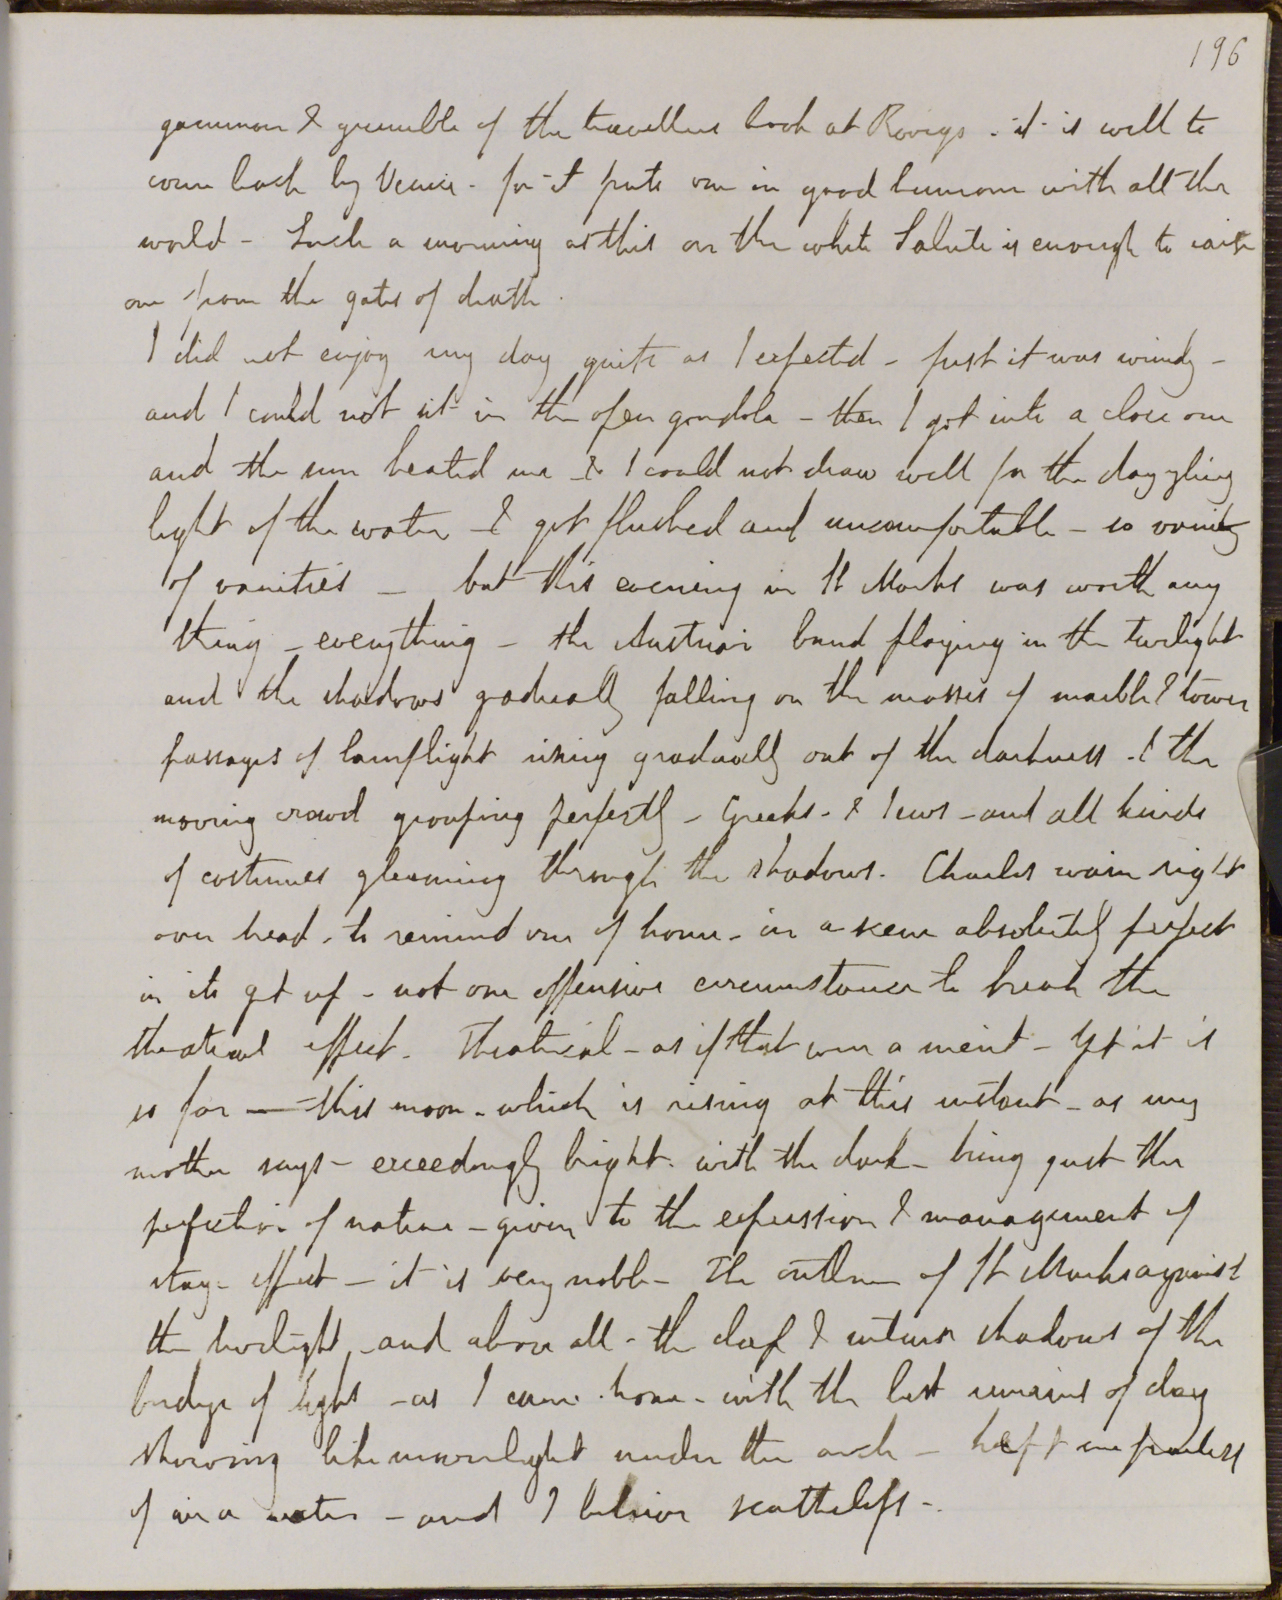 196
grumman & grumble of the travellers book at Rovigo . it is well to
come back by Venice - for it puts one in good humour with all the
world - Such a morning as this on the white Salute is enough to raise
one from the gates of death .
I did not enjoy my day quite as I expected - first it was windy -
and I could not sit in the open gondola - then I got into a close one
and the sun heated me & I could not draw well for the dazzling
light of the water - I got flushed and uncomfortable - so vanity
of vanities - but this evening in St Marks was worth any
thing - everything - the Austrian band playing in the twilight
and the shadows gradually falling on the masses of marble & tower
passages of lamplight rising gradually out of the darkness - & the
moving crowd grouping perfectly - Greeks - & Jews - and all kinds
of costumes gleaming through the shadows . Charles wain right
over head - to remind one of home - in a scene absolutely perfect
in its get up - not one offensive circumstance to break the
theatrical effect . Theatrical - as if that were a merit - Yet it is
so for - this moon - which is rising at this instant - as my
mother says - exceedingly bright . with the dark - being just the
perfection of nature - given to the expression & management of
stage effect - it is very noble - The outline of St Marks against
the twilight , and above all - the deep & intense shadows of the
bridge of sighs - as I came home - with the last remains of day
showing like moonlight under the arch - 
of in a water - and I believe